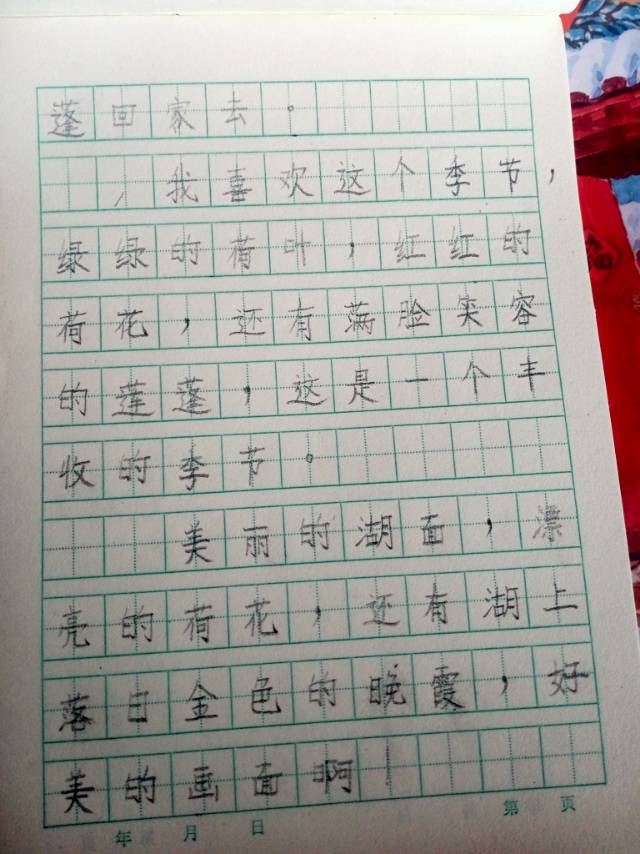 蓬回家去。
我喜欢这个季节，
绿绿的荷叶，红红的
荷花，还有满脸笑容
的莲蓬，这是一个丰
收的季节。
美丽的湖面，漂
亮的荷花，还有湖上
落日金色的晚霞，好
美的画面啊！
年 月 日 第 页